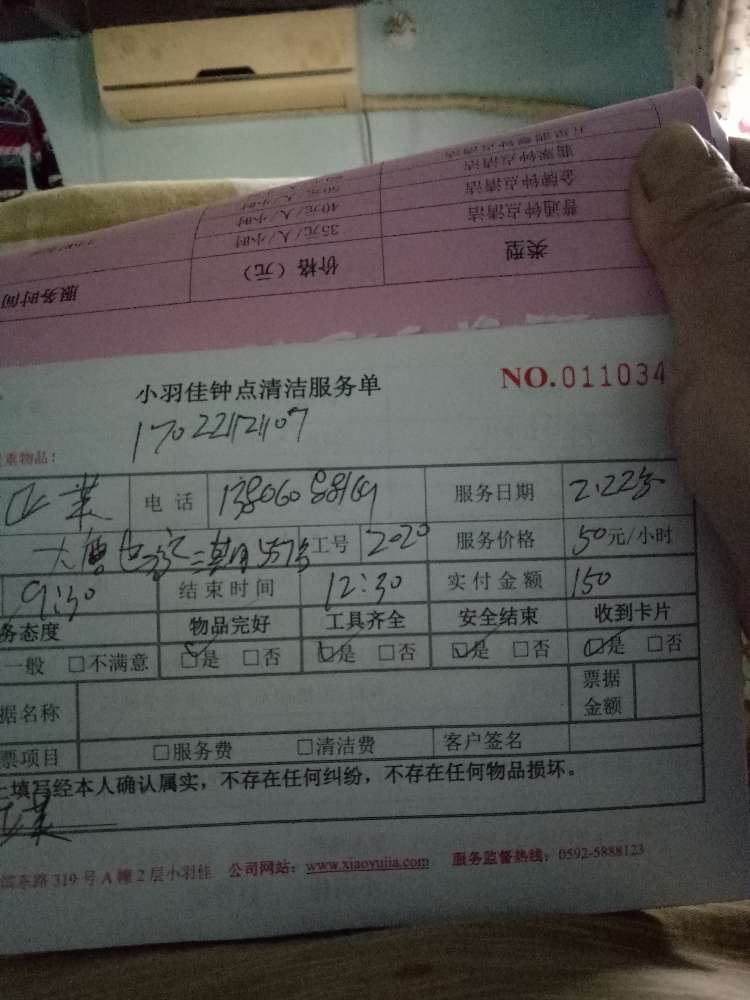 五星翡翠钟点清洁
翡翠钟点清洁
金牌钟点清洁 50元/人/小时
普通钟点清洁 40元/人/小时
35元/人/小时
类型 价格(元) 服务时间
小羽佳钟点清洁服务单 NO.011034
重物品:
电话 服务日期 2.22号
工号 2020 服务价格 50元/小时
9:30 结束时间 12:30 实付金额 150
务态度 物品完好 工具齐全 安全结束 收到卡片
一般 □不满意 □是 □否 □是 □否 □是 □否 □是 □否
据名称 票据金额
票项目 □服务费 □清洁费 客户签名
上填写经本人确认属实,不存在任何纠纷,不存在任何物品损坏。
滨东路319号A幢2层小羽佳 公司网站:www.xiaoyujia.com 服务监督热线:0592-5888123